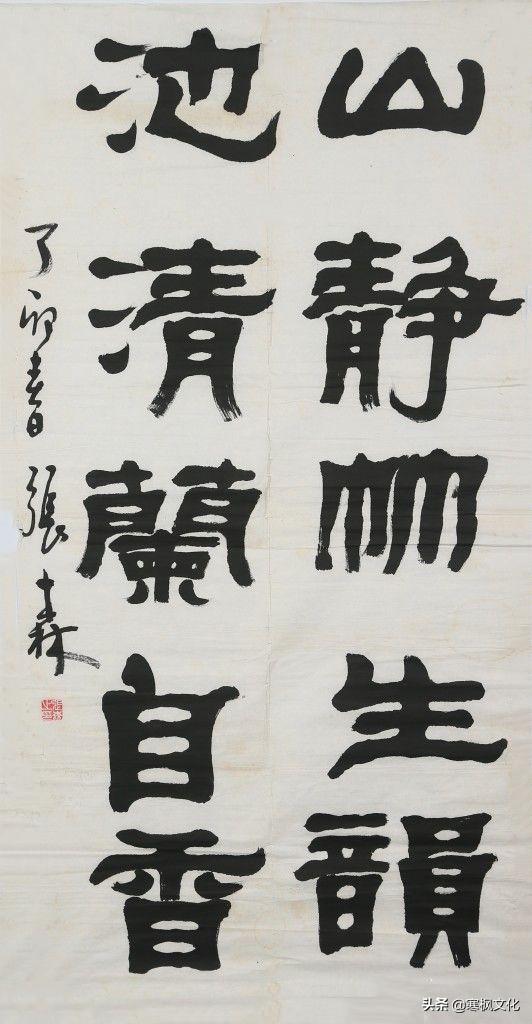 山靜竹生韻
池清蘭自香
丁卯春 張森
头条 @寒枫文化